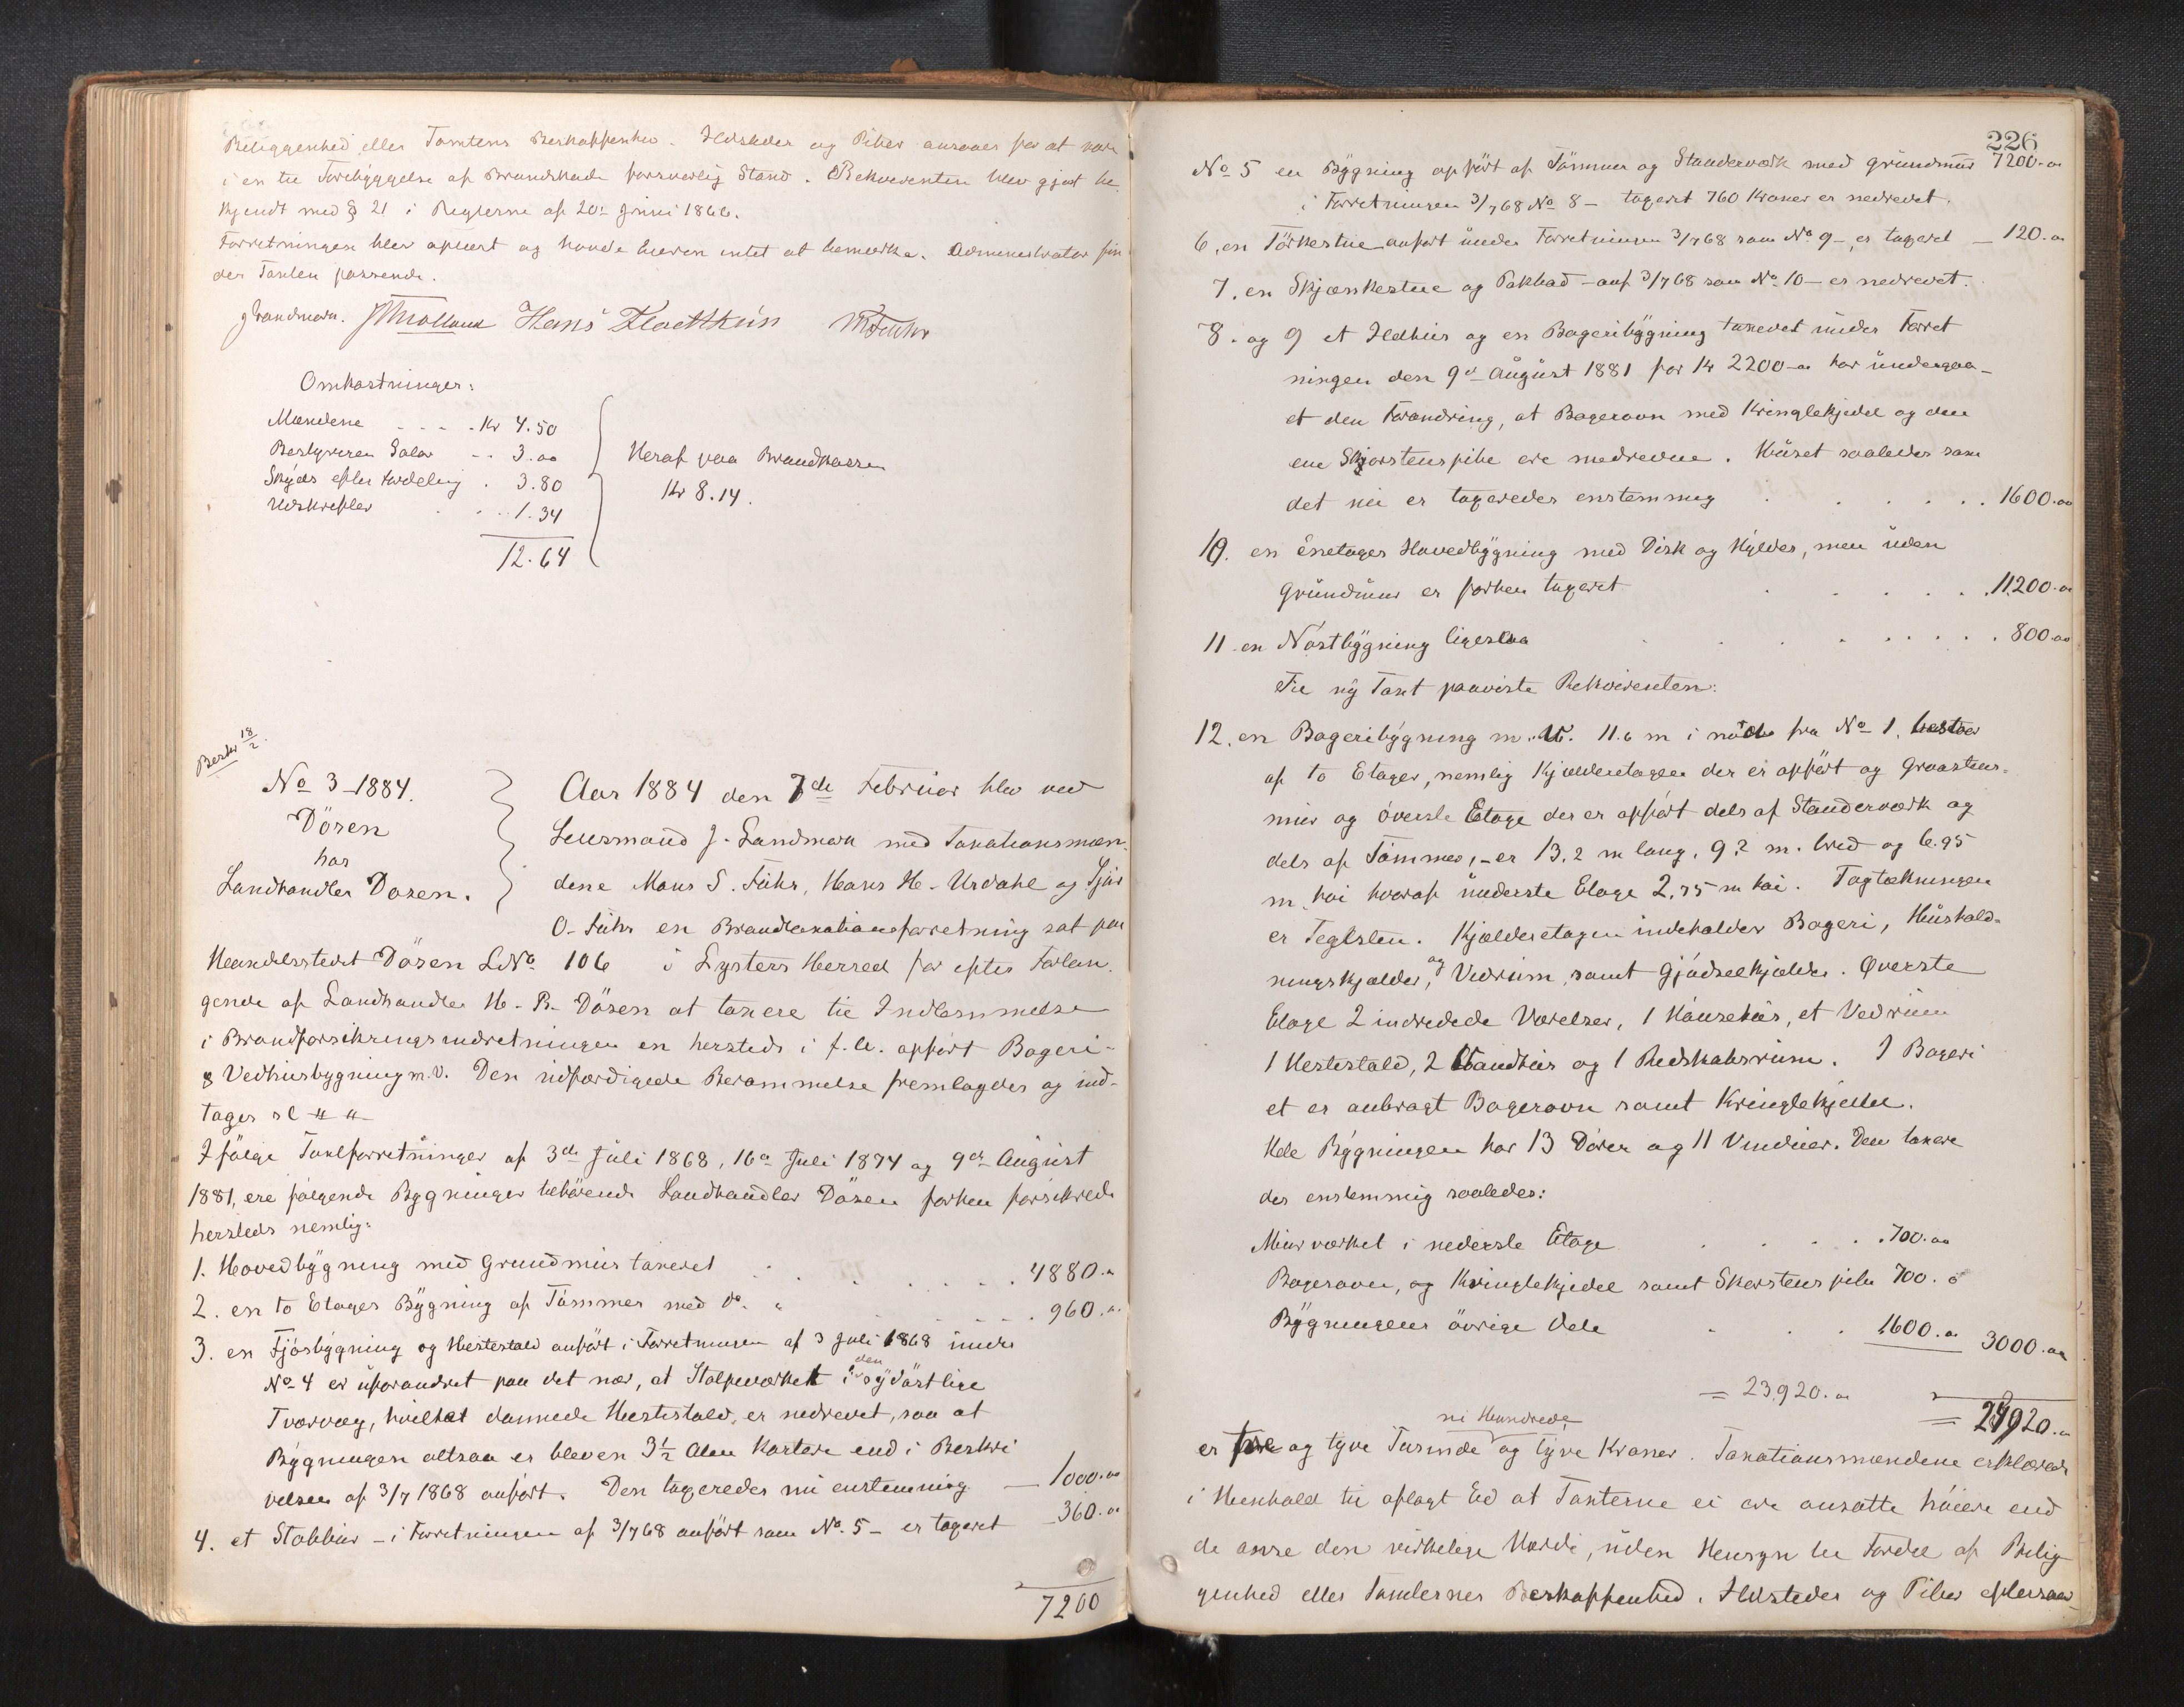 Beliggenhed eller Tomtens Beskaffenhed. Ildsteder og Piber ansaaes for at være
i en til Forebyggelse af Brandskade forsvarlig Stand. Rekvirenten blev gjort be
kjendt med § 21 i Reglerne af 20de Juni 1866.
Forretningen blev oplæst og havde Eieren intet at bemærke. Administrator fin
der Taxten passende.
J Landmark. Hans
Omkostninger:
Mændene . . . . Kr 4.50
Bestyreren Salær . . 3.00
Skyds efter Fordeling . 3.80
Udskrifter . . . 1.34
12.64
Heraf paa Brandkassen
Kr 8.14.
Beskr 18/2.
No 3-1884.
Dösen
hos
Landhandler Dösen.
Aar 1884 den 7de Februar blev ved
Lensmand J. Landmark med Taxationsmæn-
dene Mons S. Fuhr, Hans H. Urdahl og Sjur
O. Fuhr en Brandtaxationsforretning sat paa
Handelsstedet Dösen LNo 106 i Lysters Herred for efter Forlan-
gende af Landhandler H. R. Dösen at taxere til Indlemmelse
i Brandforsikringsindretningen en hersteds i f. A. opført Bageri-
& Vedhusbygning m.V. Den udfærdigede Berammelse fremlagdes og ind-
tages sl
Ifölge Taxtforretninger af 3de Juli 1868, 16de Juli 1874 og 9de August
1881, ere fölgende Bygninger tilhörende Landhandler Dösen forhen forsikrede
hersteds nemlig:
1. Hovedbygning med Grundmur taxeret . . . . . . 4880.00
2. en to Etages Bygning af Tömmer med do. " . . . . 960.00
3. en Fjösbygning og Hestestald anfört i Forretningen af 3 Juli 1868 under
No 4 er uforandret paa det nær, at Stolpeværket i den sydöstlige
Tværvæg, hvilket dannede Hestestald, er nedrevet, saa at
Bygningen altsaa er bleven 3½ Alen kortere end i Beskri
velsen af 3/7 1868 anfört. Den taxeredes nu enstemmig — 1000.00
4. et Stabbur - i Forretningen af 3/7 68 anfört som No. 5 - er taxeret — 360.00
7200
226
No 5 en Bygning opfört af Tömmer og Standerværk med Grundmur 7200.00
i Forretningen 3/7 68 No 8 - taxeret 760 Kroner er nedrevet.
6. en Törkestue anfört under Forretningen 3/7 68 som No 9 -, er taxeret — 120.00
7. en Skjænkestue og Pakbod - anf 3/7 68 som No 10 - er nedrevet.
8. og 9 et Ildhus og en Bageribygning taxeret under Forret
ningen den 9de August 1881 for Kr 2200.00 har undergaa-
et den Forandring, at Bagerovn med Kringlekjedel og den
ene Skorstenspibe ere nedrevne. Huset saaledes som
det nu er taxeredes enstemmig . . . . . . 1600.00
10. en énetages Hovedbygning med Disk og Hylder, men uden
Grundmur er forhen taxeret . . . . . . 11.200.00
11. en Nöstbygning ligesaa . . . . . . 800.00
Til ny Taxt paaviste Rekvirenten:
12. en Bageribygning m.V. 11.6 m i nord fra No 1, bestaar
af to Etager, nemlig Kjælderetagen der er opfört og Graastens-
mur og överste Etage der er opfört dels af Standerværk og
dels af Tömmer, - er 13,2 m lang, 9,2 m. bred og 6.95
m höi hvoraf underste Etage 2,75 m höi. Tagtækningen
er Teglsten. Kjælderetagen indeholder Bageri, Hushold-
ningskjælder, og Vedrum, samt Gjödselkjælder. Øverste
Etage 2 indredede Værelser, 1 Hönsehus, et Vedrum
1 Hestestald, 2 Vandhus og 1 Redskabsrum. I Bageri
et er anbragt Bagerovn samt Kringlekjedel.
Hele Bygningen har 13 Dörer og 11 Vinduer. Den taxere
des enstemmig saaledes:
Murværket i nederste Etage . . . . 700.00
Bagerovn, og Kringlekjedel samt Skorstenspibe 700. 0
Bygningens övrige Dele . . . 1600.00 3000.00
= 23,920.00
= 23,920.00
er tre og tyve Tusinde ni Hundrede og tyve Kroner. Taxationsmændene erklærede
i Henhold til aflagt Ed at Taxterne ei ere ansatte höiere end
de anse den virkelige Værdi, uden Hensyn til Fordel af Belig
genhed eller Tomternes Beskaffenhed. Ildsteder og Piber eftersaaes